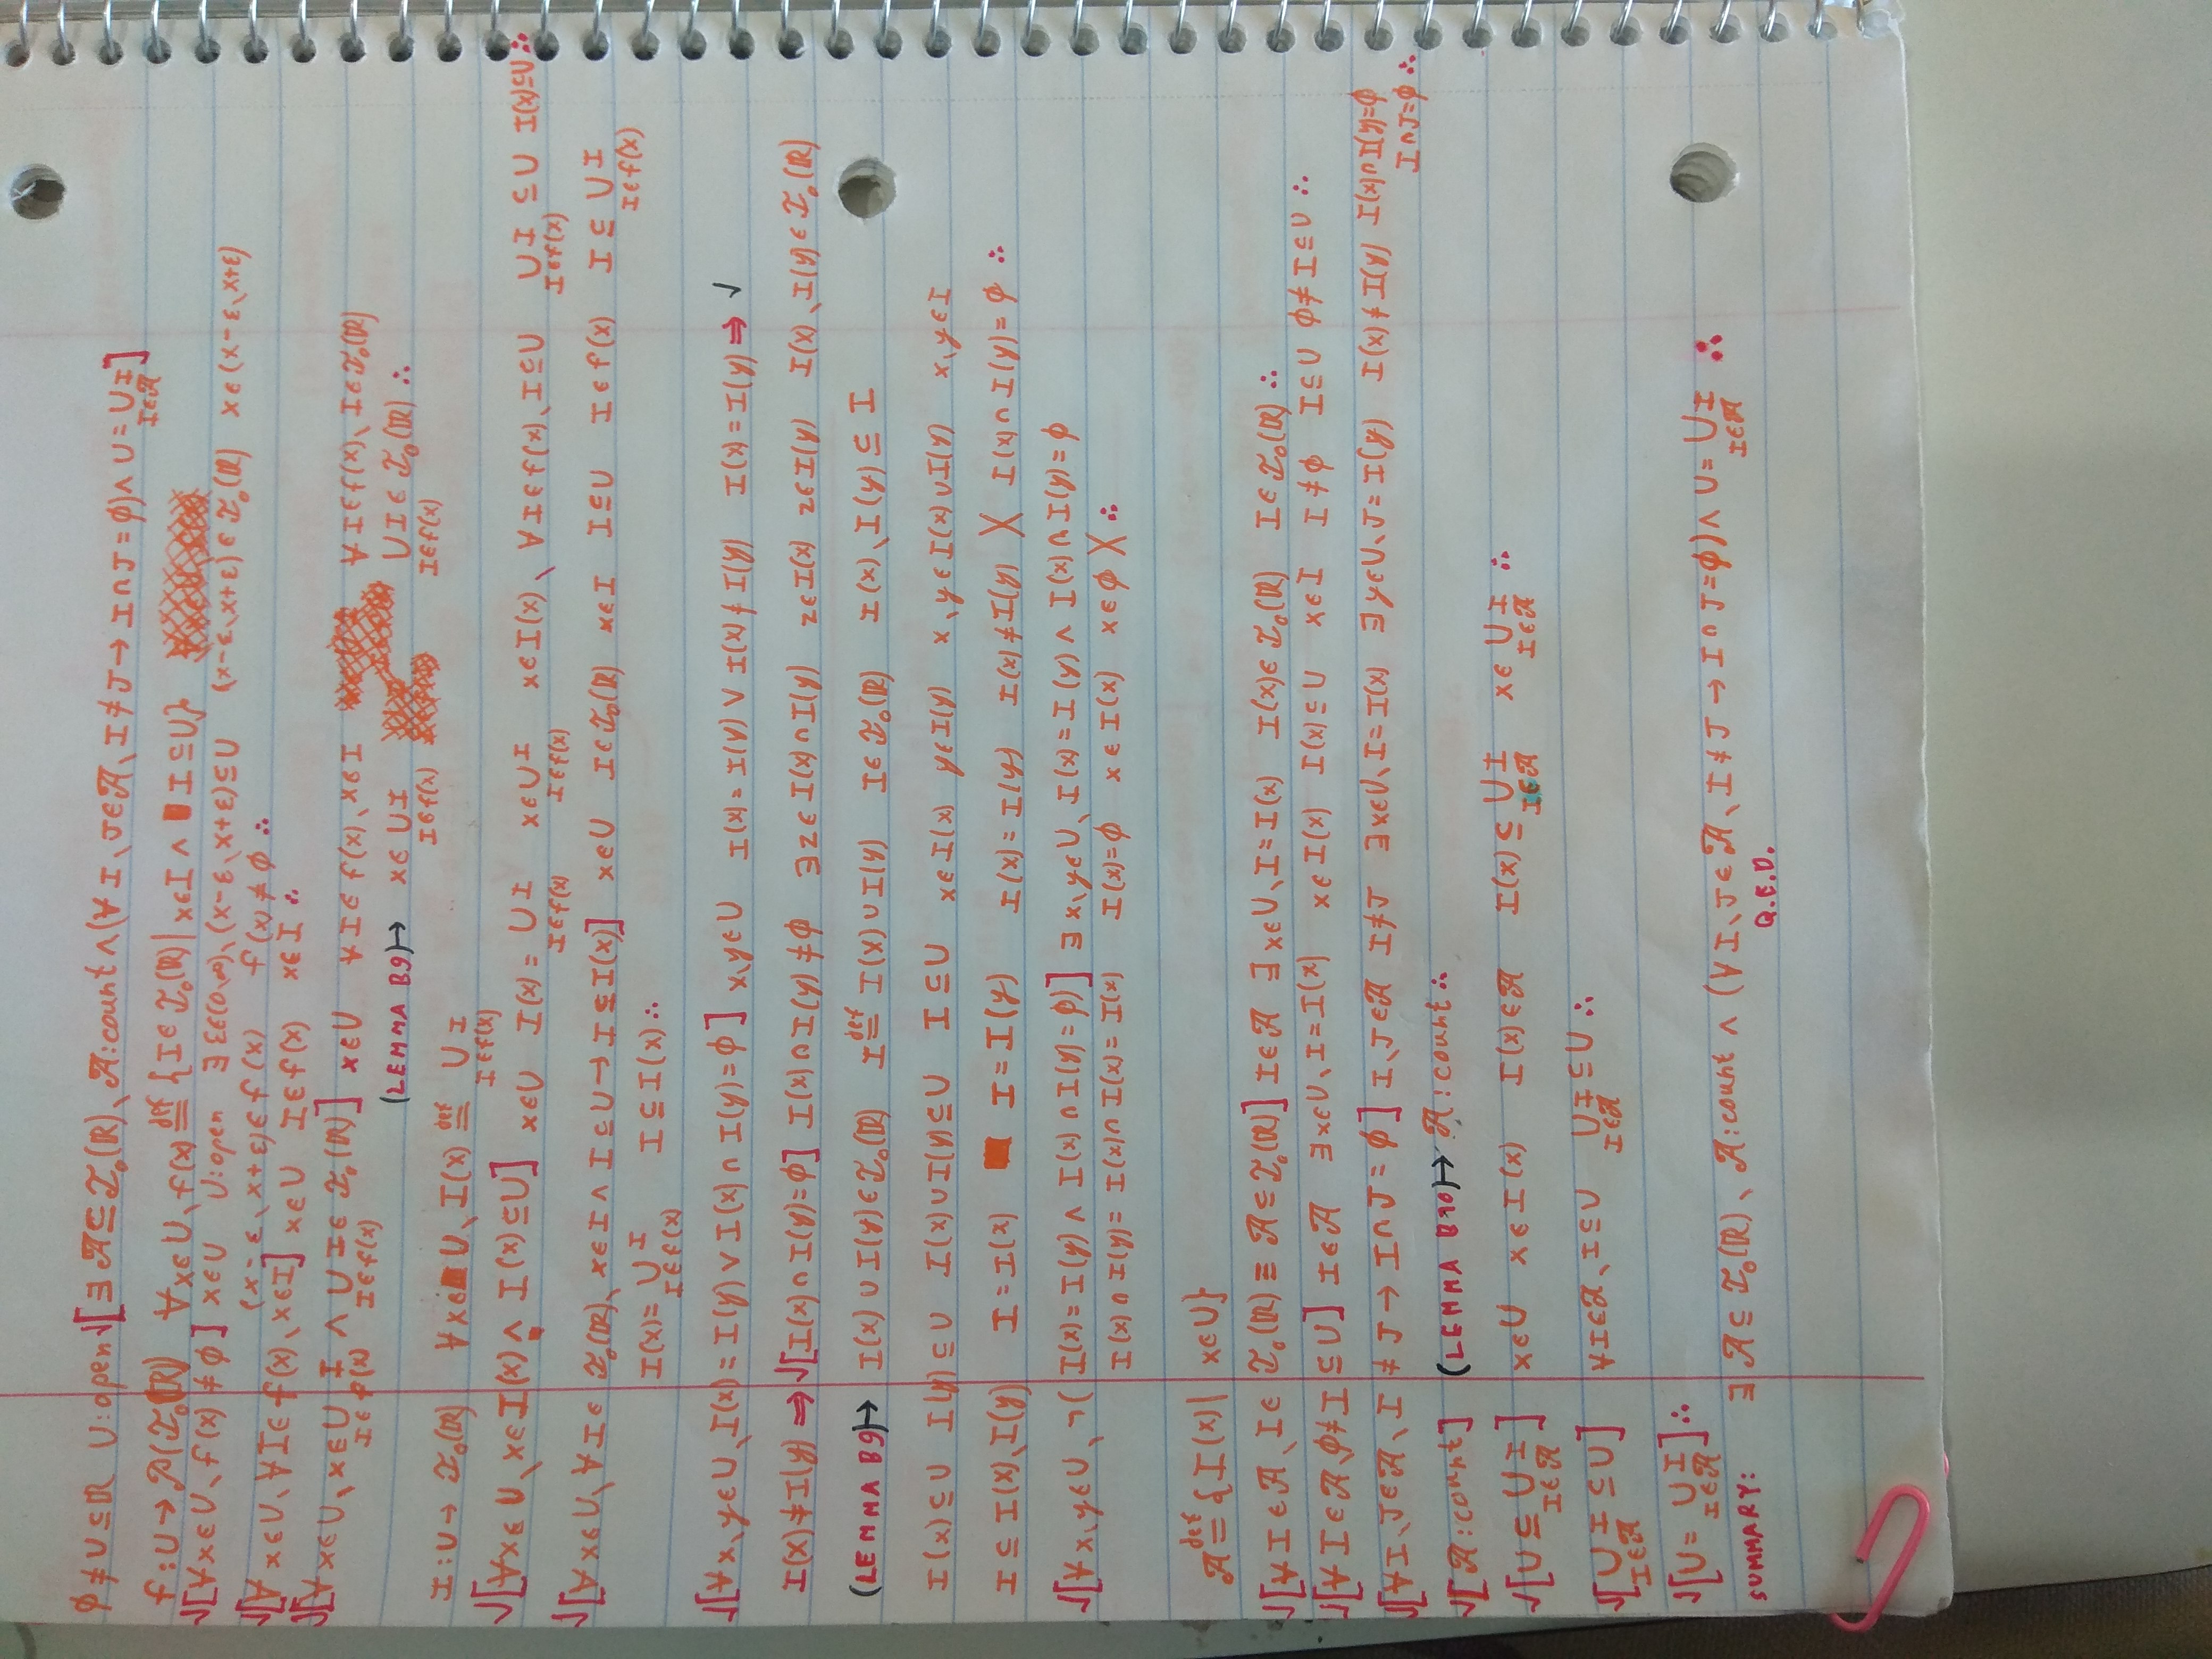 ∅≠U⊆ℝ U:open √[∃𝒜⊆ℐ₀(ℝ)、𝒜:count∧(∀I、J∈𝒜、I≠J→I∩J=∅)∧U=∪I]
I∈𝒜
f:U→𝒫(ℐ₀(ℝ)) ∀x∈U、f(x)≝{I∈ℐ₀(ℝ)|x∈I∧I⊆U}
√[∀x∈U、f(x)≠∅] x∈U U:open ∃ε∈(0,∞)、(x-ε、x+ε)⊆U (x-ε、x+ε)∈ℐ₀(ℝ) x∈(x-ε、x+ε)
(x-ε、x+ε)∈f(x) f(x)≠∅ ∴
√[∀x∈U、∀I∈f(x)、x∈I] x∈U I∈f(x) x∈I ∴
√[∀x∈U、x∈∪I ∧ ∪I∈ℐ₀(ℝ)] x∈U ∀I∈f(x)、x∈I ∀I∈f(x)、I∈ℐ₀(ℝ)
I∈f(x) I∈f(x)
(LEMMA B9)↦ x∈∪I ∪I∈ℐ₀(ℝ) ∴
I∈f(x) I∈f(x)
I:U→ℐ₀(ℝ) ∀x∈U、I(x)≝∪I
I∈f(x)
√[∀x∈U、x∈I(x)∧I(x)⊆U] x∈U I(x)=∪I x∈∪I x∈I(x)、∀I∈f(x)、I⊆U ∪I⊆U I(x)⊆U ∴
I∈f(x) I∈f(x) I∈f(x)
√[∀x∈U、∀I∈ℐ₀(ℝ)、x∈I∧I⊆U→I⊆I(x)] x∈U I∈ℐ₀(ℝ) x∈I I⊆U I∈f(x) I⊆∪I
I∈f(x)
I(x)=∪I I⊆I(x) ∴
I∈f(x)
√[∀x、y∈U、I(x)=I(y)∨I(x)∩I(y)=∅] x、y∈U I(x)=I(y)∨I(x)≠I(y) I(x)=I(y)⇒√
I(x)≠I(y)⇒√[I(x)∩I(y)=∅] I(x)∩I(y)≠∅ ∃z∈I(x)∩I(y) z∈I(x) z∈I(y) I(x)、I(y)∈ℐ₀(ℝ)
(LEMMA B9)↦ I(x)∪I(y)∈ℐ₀(ℝ) I≝I(x)∪I(y) I∈ℐ₀(ℝ) I(x)、I(y)⊆I
I(x)⊆U I(y)⊆U I(x)∪I(y)⊆U I⊆U x∈I(x) y∈I(y) x、y∈I(x)∪I(y) x、y∈I
I⊆I(x)、I(y) I=I(x) I=I(y) I(x)=I(y) I(x)≠I(y) X I(x)∩I(y)=∅ ∴
√[∀x、y∈U、¬(I(x)=I(y)∧I(x)∩I(y)=∅)] ∃x、y∈U、I(x)=I(y)∧I(x)∩I(y)=∅
I(x)∩I(y)=I(x)∩I(x)=I(x) I(x)=∅ x∈I(x) x∈∅ X ∴
𝒜≝{I(x)|x∈U}
√[∀I∈𝒜、I∈ℐ₀(ℝ)≡𝒜⊆ℐ₀(ℝ)] I∈𝒜 ∃x∈U、I=I(x) I(x)∈ℐ₀(ℝ) I∈ℐ₀(ℝ) ∴
√[∀I∈𝒜、∅≠I⊆U] I∈𝒜 ∃x∈U、I=I(x) x∈I(x) I(x)⊆U x∈I I≠∅ I⊆U ∅≠I⊆U ∴
√[∀I、J∈𝒜、I≠J→I∩J=∅] I、J∈𝒜 I≠J ∃x∈U、I=I(x) ∃y∈U、J=I(y) I(x)≠I(y) I(x)∩I(y)=∅
I∩J=∅ ∴
√[𝒜:count] (LEMMA B10)↦ 𝒜:count ∴
√[U⊆∪I] x∈U x∈I(x) I(x)∈𝒜 I(x)⊆∪I x∈∪I ∴
I∈𝒜 I∈𝒜 I∈𝒜
√[∪I⊆U] ∀I∈𝒜、I⊆U ∪I⊆U ∴
I∈𝒜 I∈𝒜
√[U=∪I] ∴
I∈𝒜
SUMMARY: ∃𝒜⊆ℐ₀(ℝ)、𝒜:count∧(∀I、J∈𝒜、I≠J→I∩J=∅)∧U=∪I ∴
I∈𝒜
Q.E.D.